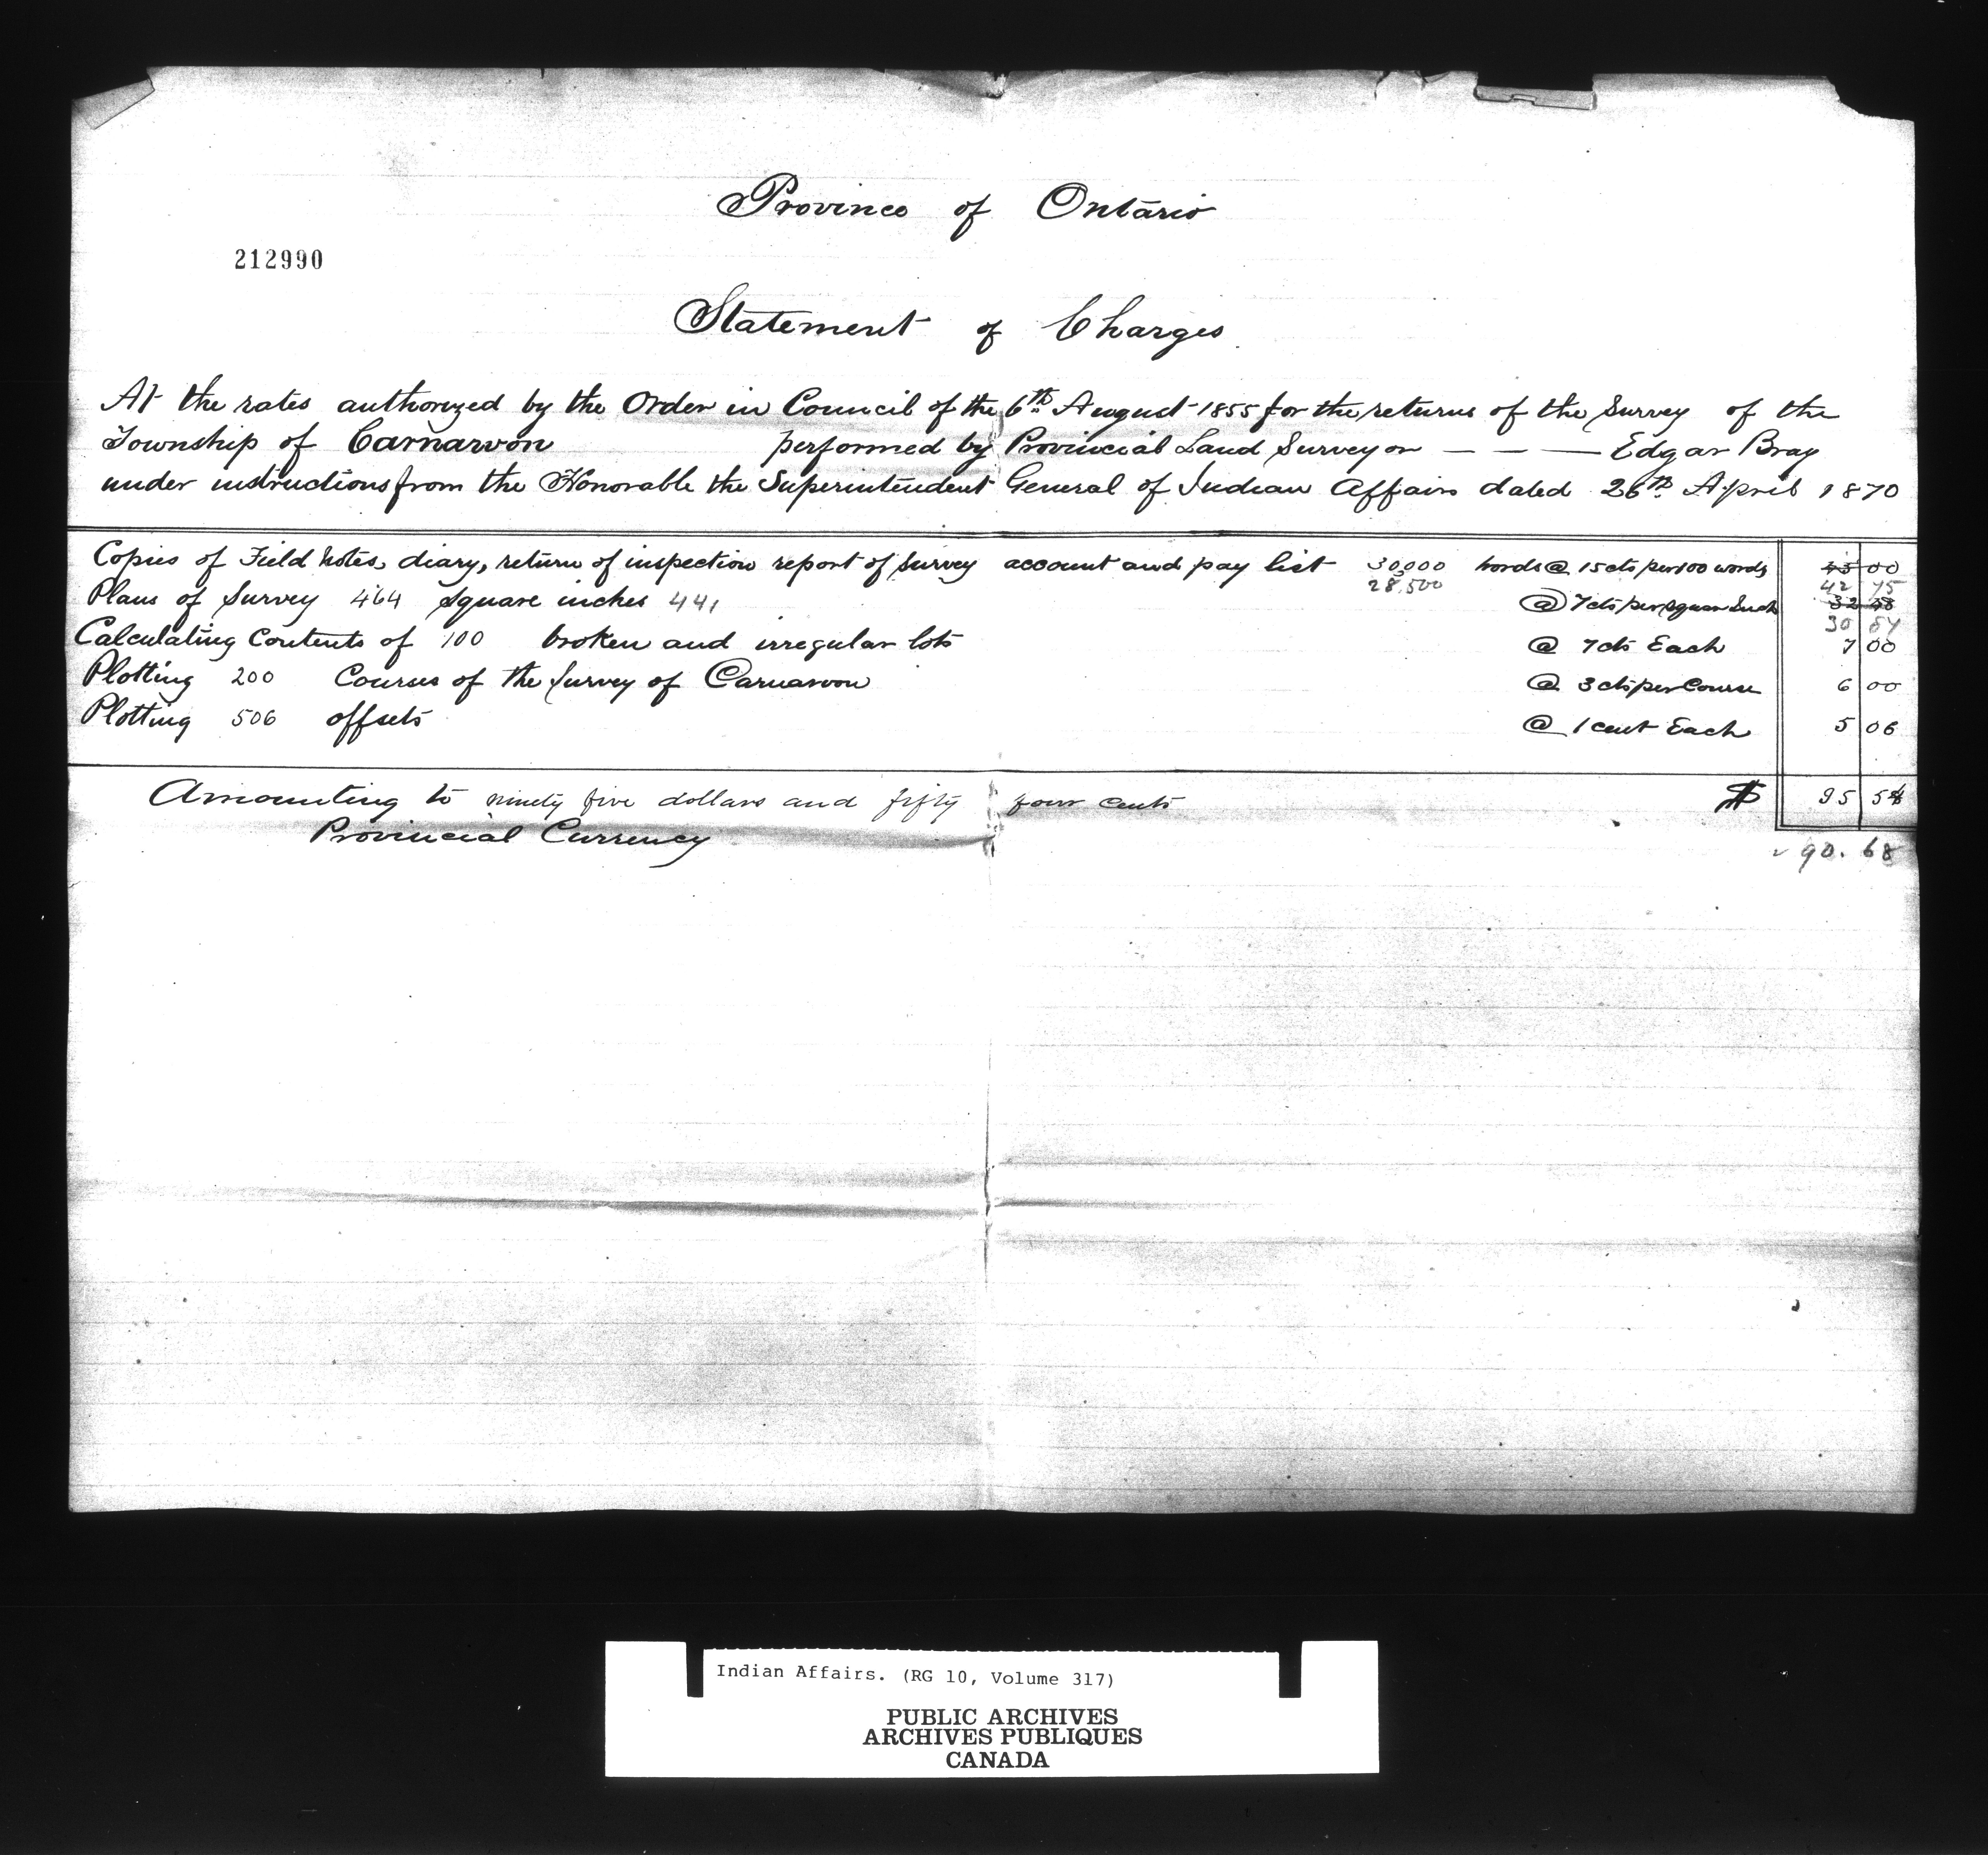 Province of Ontario
212990
Statement of Charges
At the rates authorized by the Order in Council of the 6th August 1855 for the returns of the Survey of the
Township of Carnarvon performed by Provincial Land Surveyor — — — Edgar Bray
under instructions from the Honorable the Superintendent General of Indian Affairs dated 26th April 1870
Copies of Field Notes, diary, return of inspection report of Survey account and pay list 30,000 words @ 15 cts per 100 words 45 00
28,500 42 75
Plans of Survey 464 Square inches 441 @ 7 cts per square Inch 32 48
30 87
Calculating Contents of 100 broken and irregular lots @ 7 cts Each 7 00
Plotting 200 Courses of the Survey of Carnarvon @ 3 cts per Course 6 00
Plotting 506 offsets @ 1 cent Each 5 06
Amounting to ninety five dollars and fifty four cents $ 95 54
Provincial Currency
90.68
Indian Affairs. (RG 10, Volume 317)
PUBLIC ARCHIVES
ARCHIVES PUBLIQUES
CANADA